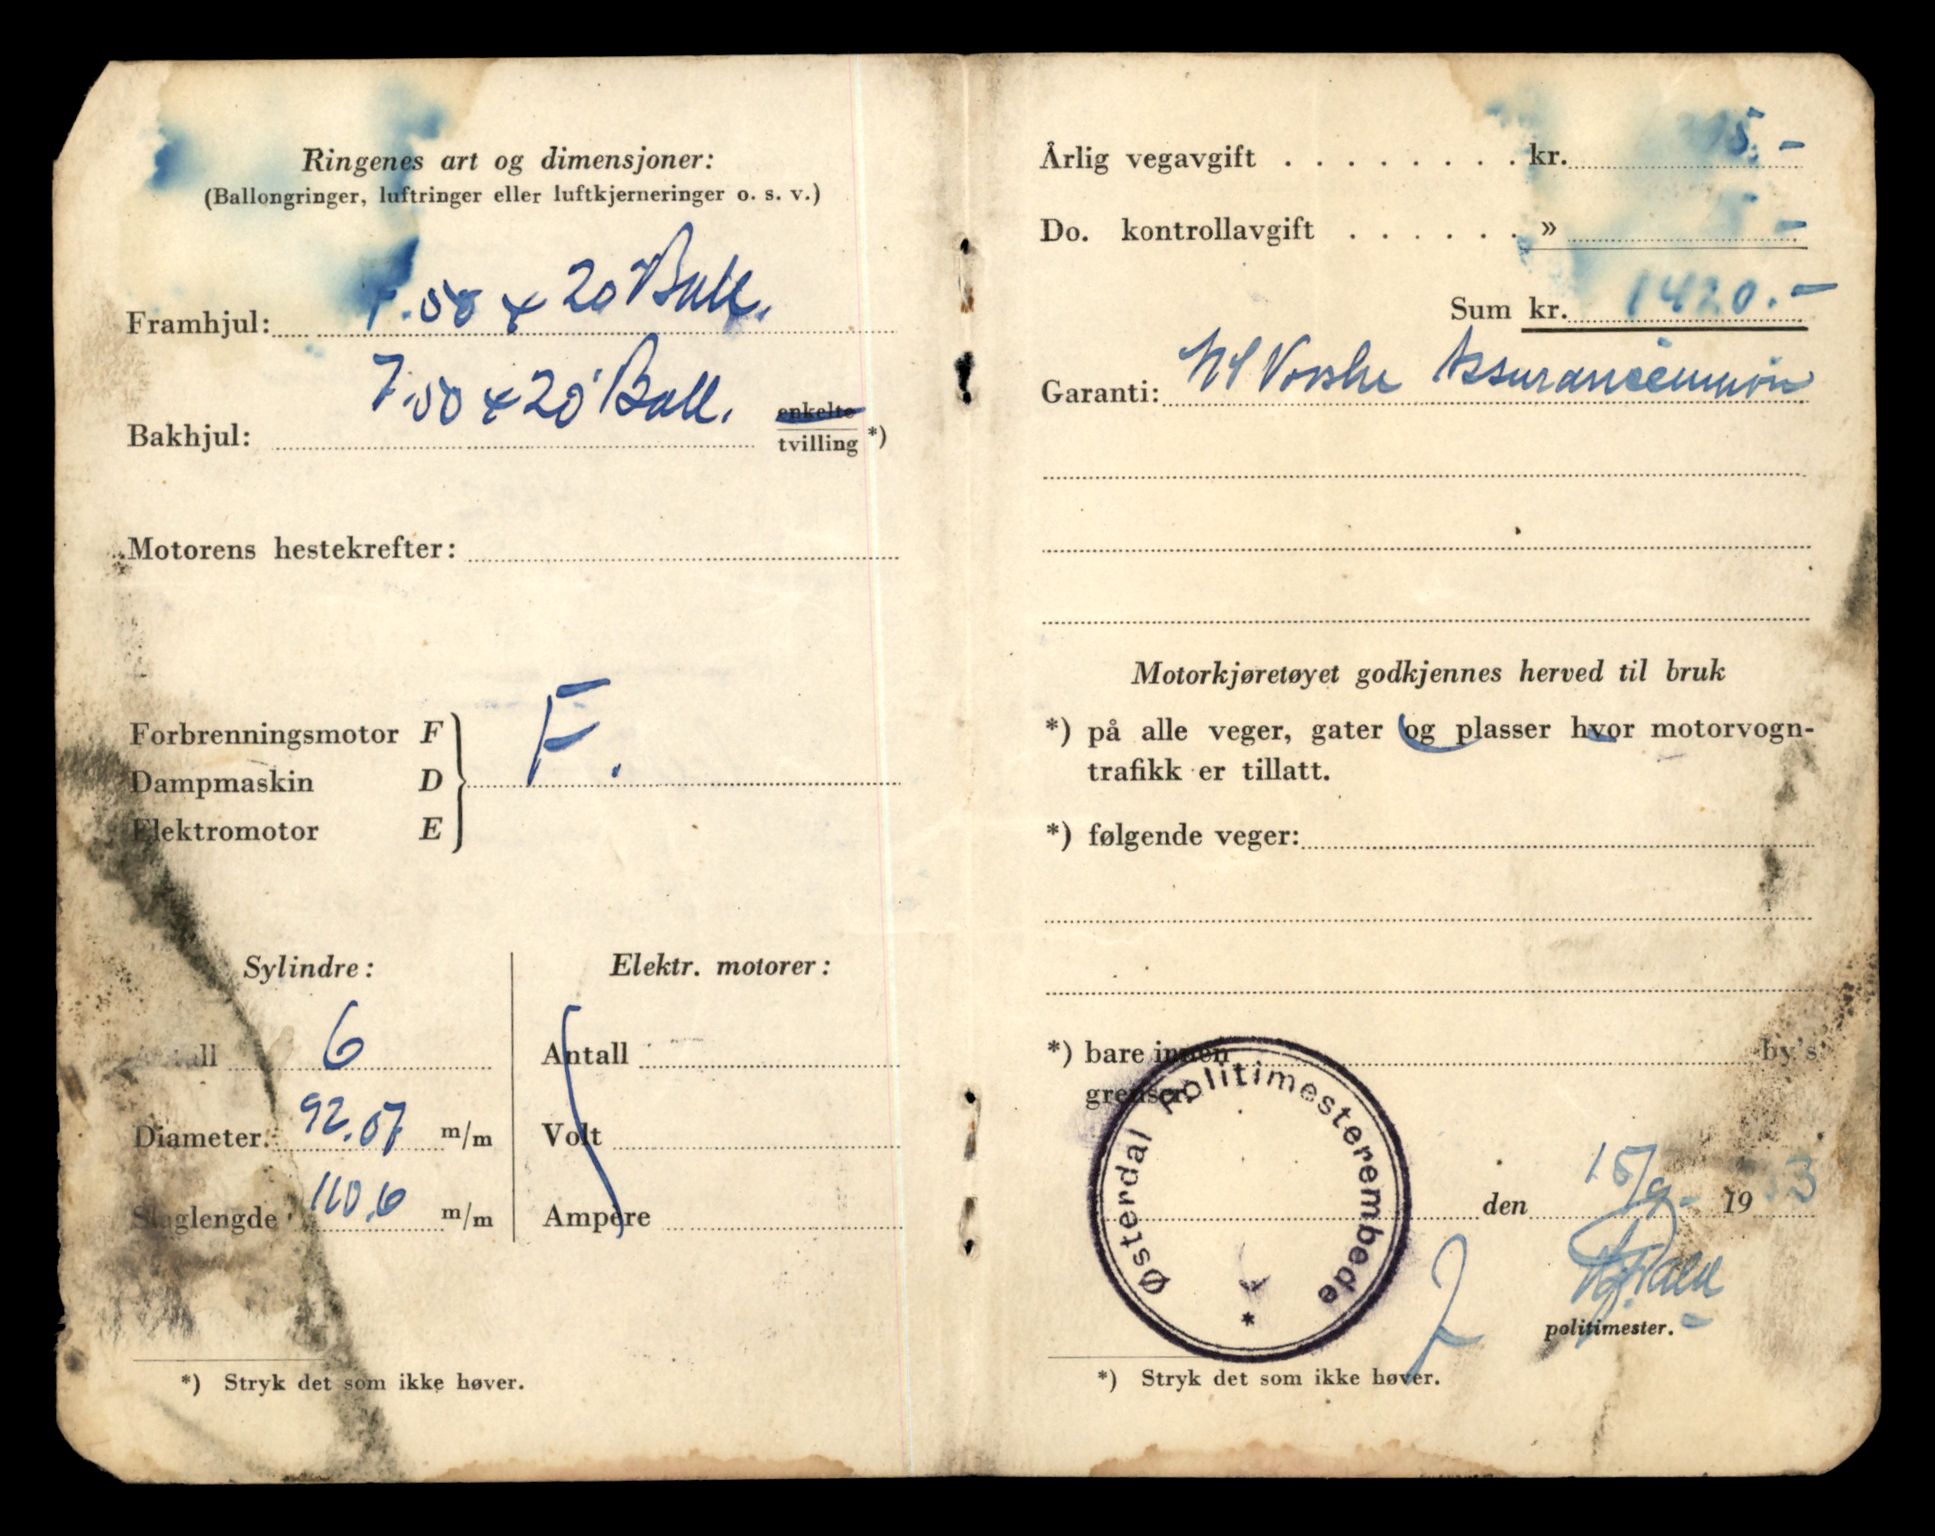 Ringenes art og dimensjoner:
(Ballongringer, luftringer eller luftkjerneringer o. s. v.)
Framhjul: 7.50 x 20 Ball.
Bakhjul: 7.50 x 20 Ball. enkelte
tvilling *)
Motorens hestekrefter:
Forbrenningsmotor F
Dampmaskin D
Elektromotor E
F.
Sylindre:
Antall 6
Diameter 92.07 m/m
Slaglengde 110.6 m/m
Elektr. motorer:
Antall
Volt
Ampere
*) Stryk det som ikke høver.
Årlig vegavgift . . . . . . . . . kr. 15.-
Do. kontrollavgift . . . . . . » -
Sum kr. 1420.-
Garanti: Norske Assuranceunion
Motorkjøretøyet godkjennes herved til bruk
*) på alle veger, gater og plasser hvor motorvogn-
trafikk er tillatt.
*) følgende veger:
*) bare innen by's
grenser.
Østerdal Politimesterembede
*
den 15/9- 1953
politimester.
*) Stryk det som ikke høver.